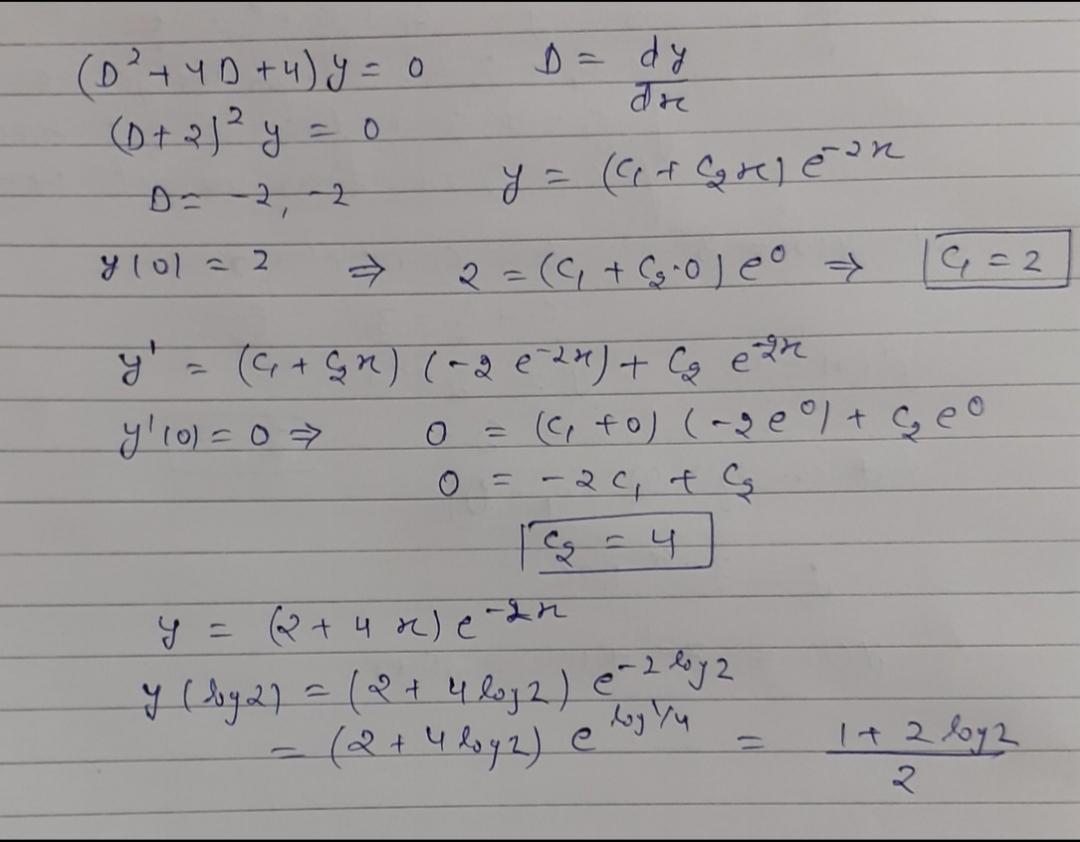 (D² + 4D + 4) y = 0    D = dy/dx
(D + 2)² y = 0
y = (C₁ + C₂x) e⁻²ˣ
D = -2, -2
y(0) = 2 ⇒ 2 = (C₁ + C₂·0) e⁰ ⇒ C₁ = 2
y' = (C₁ + C₂x) (-2 e⁻²ˣ) + C₂ e⁻²ˣ
y'(0) = 0 ⇒ 0 = (C₁ + 0) (-2e⁰) + C₂ e⁰
0 = -2C₁ + C₂
C₂ = 4
y = (2 + 4x) e⁻²ˣ
y(log2) = (2 + 4log2) e^(-2 log2)
= (2 + 4log2) e^(log 1/4) = (1 + 2 log2)/2